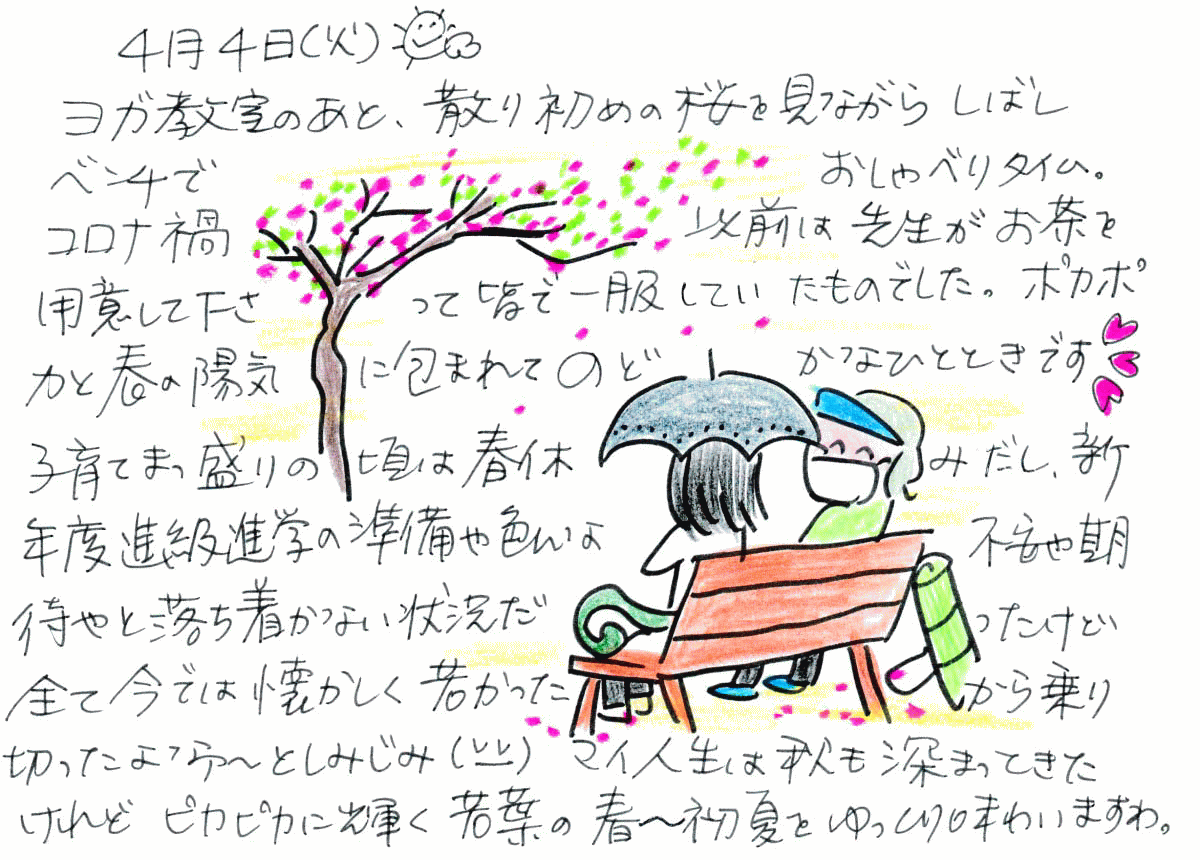 4月4日(火)
ヨガ教室のあと、散り初めの桜を見ながらしばし
ベンチで おしゃべりタイム。
コロナ禍 以前は先生がお茶を
用意して下さ って皆で一服していたものでした。ポカポ
カと春の陽気 に包まれてのど かなひとときです
子育てまっ盛りの 頃は春休 みだし、新
年度進級進学の準備や色んな 不安や期
待やと落ち着かない状況だ ったけど
全て今では懐かしく 若かった から乗り
切ったよなぁ〜としみじみ マイ人生は秋も深まってきた
けれど ピカピカに輝く若葉の春〜初夏をゆっくり味わいますわ。